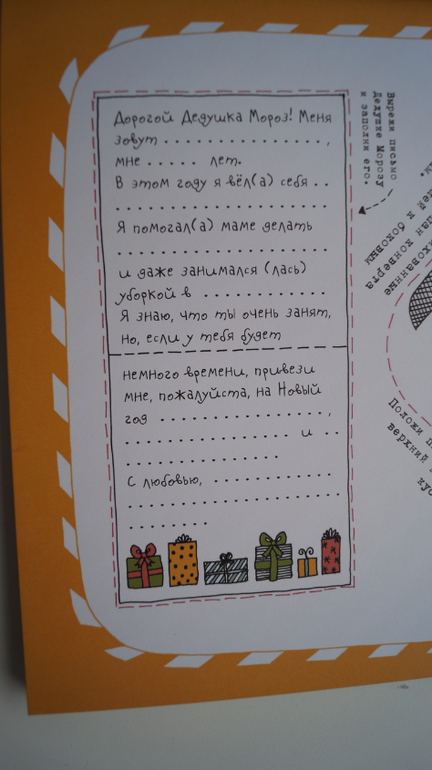 Дорогой Дедушка Мороз! Меня
зовут . . . . . . . . . . . . . . . . ,
мне . . . . . лет.
В этом году я вёл(а) себя . .
. . . . . . . . . . . . . . . . . . . . .
Я помогал(а) маме делать
. . . . . . . . . . . . . . . . . . . . .
и даже занимался (лась)
уборкой в . . . . . . . . . . . .
Я знаю, что ты очень занят,
но, если у тебя будет
немного времени, привези
мне, пожалуйста, на Новый
год . . . . . . . . . . . . . . . . ,
. . . . . . . . . . . . . . . . и . .
. . . . . . . . . . . . . . .
С любовью, . . . . . . . . . . . .
. . . . . . . . . . . . . . . . . . . . .
. . . . . . . .
Вырежи письмо
Дедушке Морозу
и заполни его.
конверта
к боковым
Положи
верхний